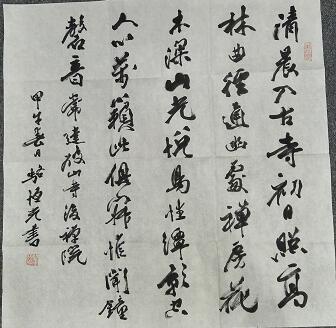 清晨入古寺初日照高
林曲徑通幽處禪房花
木深山光悅鳥性潭影空
人心萬籟此俱寂惟聞鐘
磬音常建破山寺後禪院
甲午春日駱恒光書